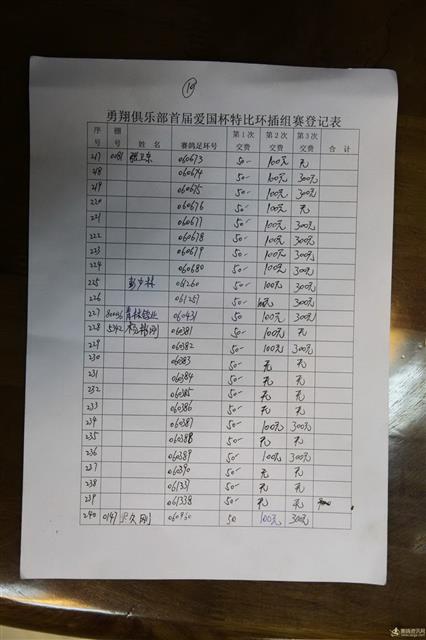 19
勇翔俱乐部首届爱国杯特比环插组赛登记表
序号 棚号 姓名 赛鸽足环号 第1次交费 第2次交费 第3次交费 合计
217 0081 060673 50- 100元 无
218 060674 50- 100元 300元
219 060675 50- 100元 300元
220 060676 50- 100元 无
221 060677 50- 100元 300元
222 060678 50- 100元 300元
223 060679 50- 100元 300元
224 060680 50- 100元 300元
225 彭少林 061260 50- 100元 300元
226 061257 50- 100元 300元
227 80036 060431 50 100元 300元
228 5342 060381 50- 100元 无
229 060382 50- 100元 300元
230 060383 50- 无 无
231 060384 50- 无 无
232 060385 50- 无 无
233 060386 50- 无 无
234 060387 50- 100元 300元
235 060388 50- 无 无
236 060389 50- 100元 300元
237 060390 50- 无 无
238 061337 50- 无 无
239 061338 50- 无 无
240 0147 久刚 50 100元 300元